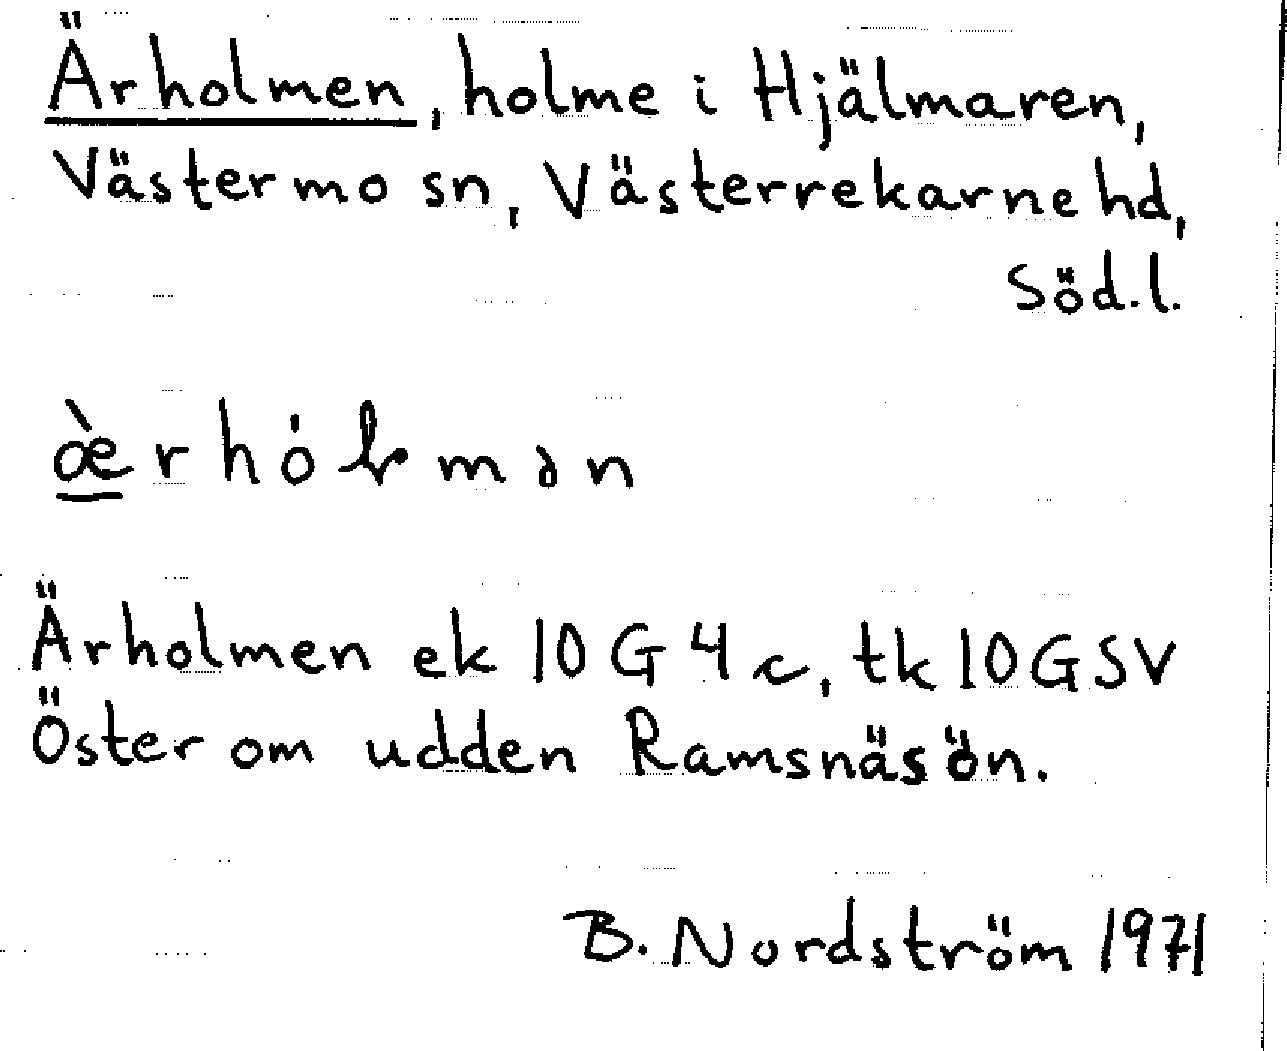 Ärholmen, holme i Hjälmaren,
Västermo sn, Västerrekarne hd,
Söd.l.
æ̀rhȯɫmən
Ärholmen ek 10G4c, tk 10GSV
Öster om udden Ramsnäsön.
B. Nordström 1971